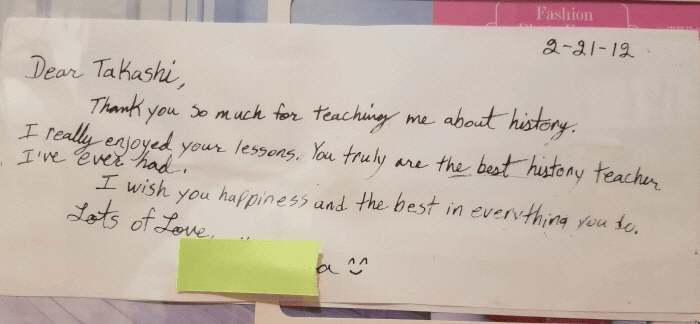 Fashion
2-21-12
Dear Takashi,
Thank you so much for teaching me about history.
I really enjoyed your lessons. You truly are the best history teacher
I've ever had.
I wish you happiness and the best in everything you do.
Lots of Love,
a ^^